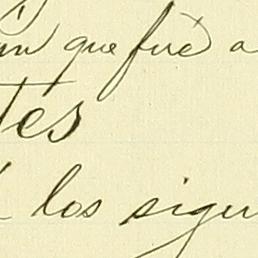 que fué a
tés
los sigu